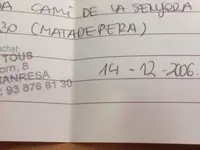 CAMÍ DE LA SENYORA
30 (MATADEPERA)
TOUS
orn, 8
MANRESA
: 93 876 81 30
14 - 12 - 2006.